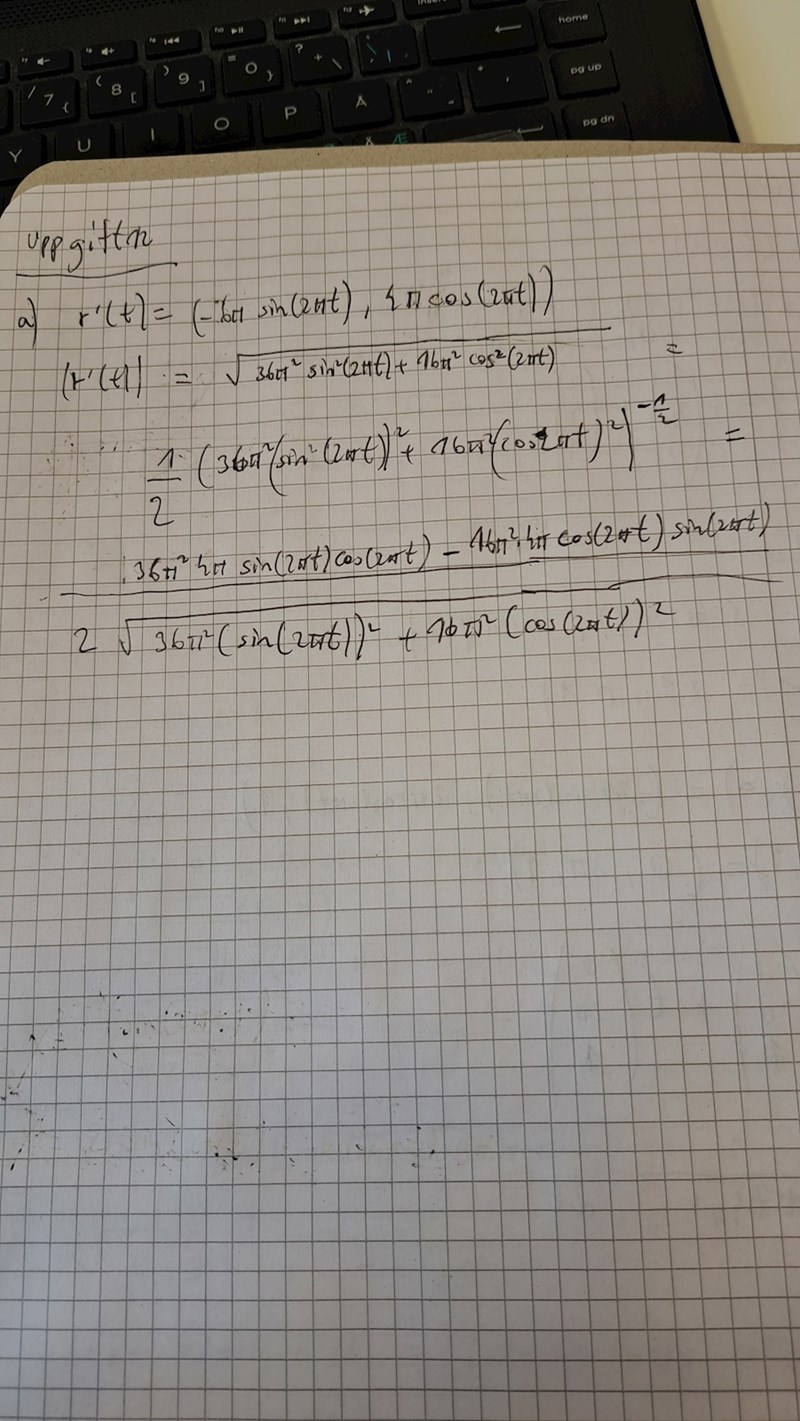 home
7 { 8 [ 9 ] 0 } ? + \ pg up
Y U I O P Å pg dn
Æ
Uppgiftn
a) r'(t) = (-6π sin(2πt), 4π cos(2πt))
|r'(t)| = √36π² sin²(2πt) + 16π² cos²(2πt) =
1/2 (36π²(sin²(2πt))² + 16π²(cos2πt)²)^-1/2 =
36π² 4π sin(2πt) cos(2πt) - 16π²·4π cos(2πt) sin(2πt)
2 √36π²(sin(2πt))² + 16π²(cos(2πt))²